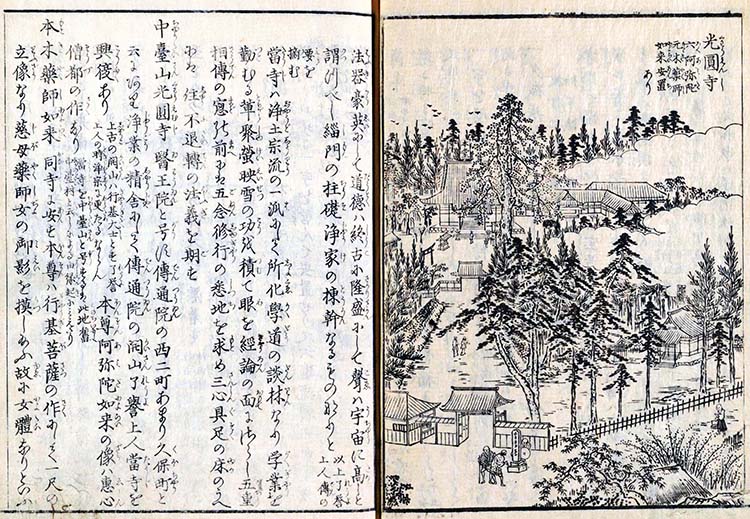 光圓寺
六阿弥陀
元木薬師
如来安置
あり
法器豪英にして道徳ハ終古に隆盛にして聲ハ宇宙に高しと
謂つべし緇門の柱礎浄家の棟幹なるものなりと 以上了誉上人傳の
要を
摘む
當寺ハ浄土宗流の一派にして所化學道の談林なり学業を
勤むる輩聚螢映雪の功を積て眼を經論の面にさらし五重
相傳の窓の前にハ五念修行の悉地を求め三心具足の床のうへ
にハ往生不退轉の法義を期す
中臺山光圓寺 醫王院と号す傳通院の西二町あまり久保町と
云にあり浄業の精舎にして傳通院の開山了誉上人當寺を
興復あり 上古の開山ハ行基大士とも了誉
上人の時浄宗に更たむるならん 本尊阿弥陀如来の像ハ惠心
僧都の作なり 當寺を中臺山と号するも此地舊
本木薬師如来 同寺に安す本尊ハ行基菩薩の作にして一尺の
立像なり慈母薬師女の御影を摸しあふ故に女體なりといふ